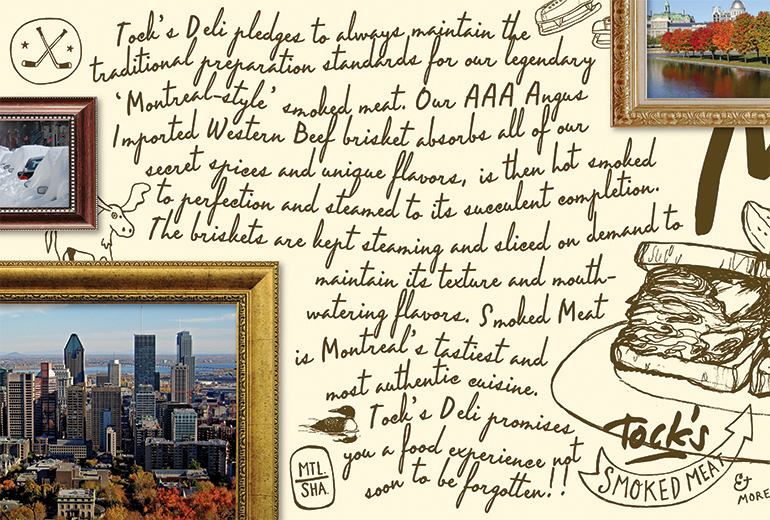 Tock's Deli pledges to always maintain the
traditional preparation standards for our legendary
'Montreal-style' smoked meat. Our AAA Angus
Imported Western Beef brisket absorbs all of our
secret spices and unique flavors, is then hot smoked
to perfection and steamed to its succulent completion.
The briskets are kept steaming and sliced on demand to
maintain its texture and mouth-
watering flavors. Smoked Meat
is Montreal's tastiest and
most authentic cuisine.
Tock's Deli promises
you a food experience not
soon to be forgotten!!
MTL.
SHA.
Tock's
SMOKED MEAT
&
MORE